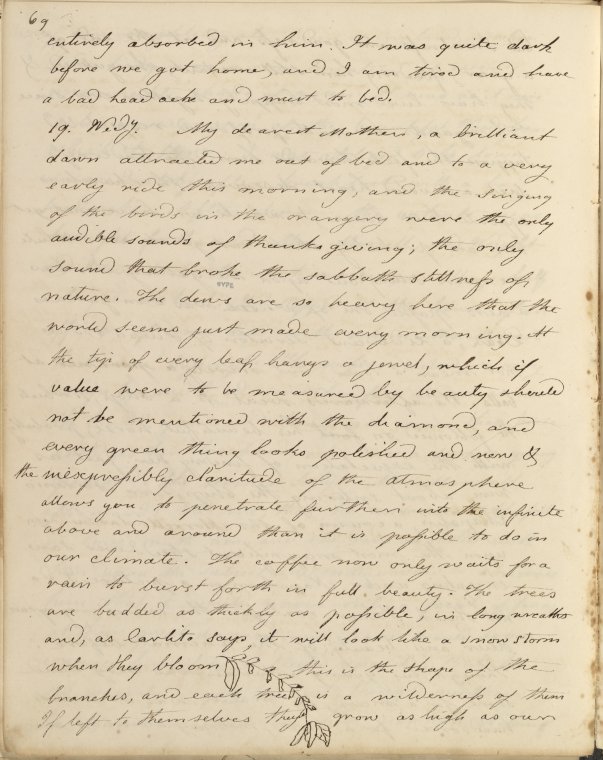 69
entirely absorbed in him. It was quite dark
before we got home, and I am tired and have
a bad head ache and must to bed.
19. Wedy. My dearest Mother, a brilliant
dawn attracted me out of bed and to a very
early ride this morning, and the singing
of the birds in the orangery were the only
audible sounds of thanksgiving; the only
sound that broke the sabbath stillness of
nature. The dews are so heavy here that the
world seems just made every morning. At
the tip of every leaf hangs a jewel, which if
value were to be measured by beauty should
not be mentioned with the diamond, and
every green thing looks polished and new &
the inexpressibly claritude of the atmosphere
allows you to penetrate further into the infinite
above and around than it is possible to do in
our climate. The coffee now only waits for a
rain to burst forth in full beauty. The trees
are budded as thickly as possible, in long wreaths
and, as Carlito says, it will look like a snow storm
when they bloom this is the shape of the
branches, and each tree is a wilderness of them
If left to themselves they grow as high as our